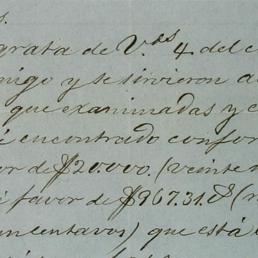 s.
grata de V.ds 4 del c
migo y se sirvieron a
que examinadas y c
é encontrado confor
or de $20.000. (veinte
favor de $967.31.
centavos) que está